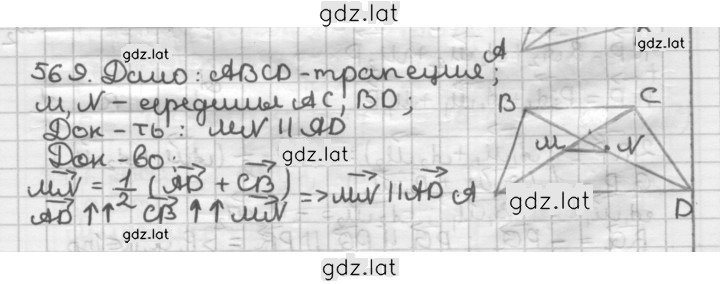 gdz.lat
A
gdz.lat
gdz.lat
569. Дано: ABCD - трапеция;
M, N - середины AC, BD;
Док-ть: MN || AD
Док-во:
gdz.lat
MN = 1/2 (AD + CB) => MN || AD
AD ↑↑ CB ↑↑ MN
gdz.lat
B C
M N
A D
gdz.lat
gdz.lat